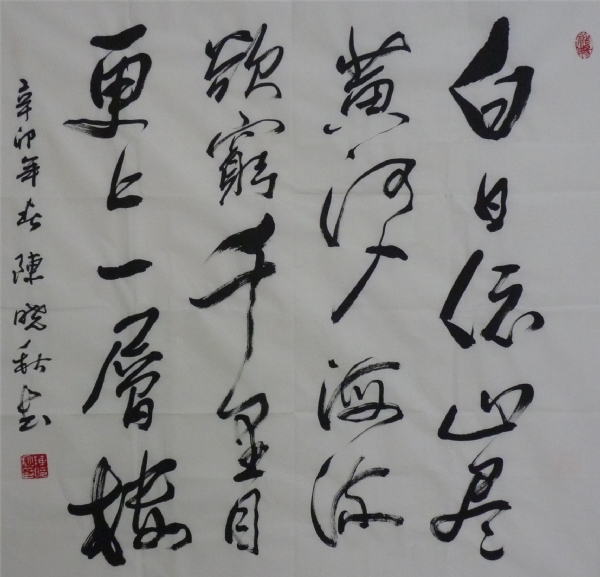 白日依山尽
黄河入海流
欲窮千里目
更上一層楼
辛卯年春陳晓秋书